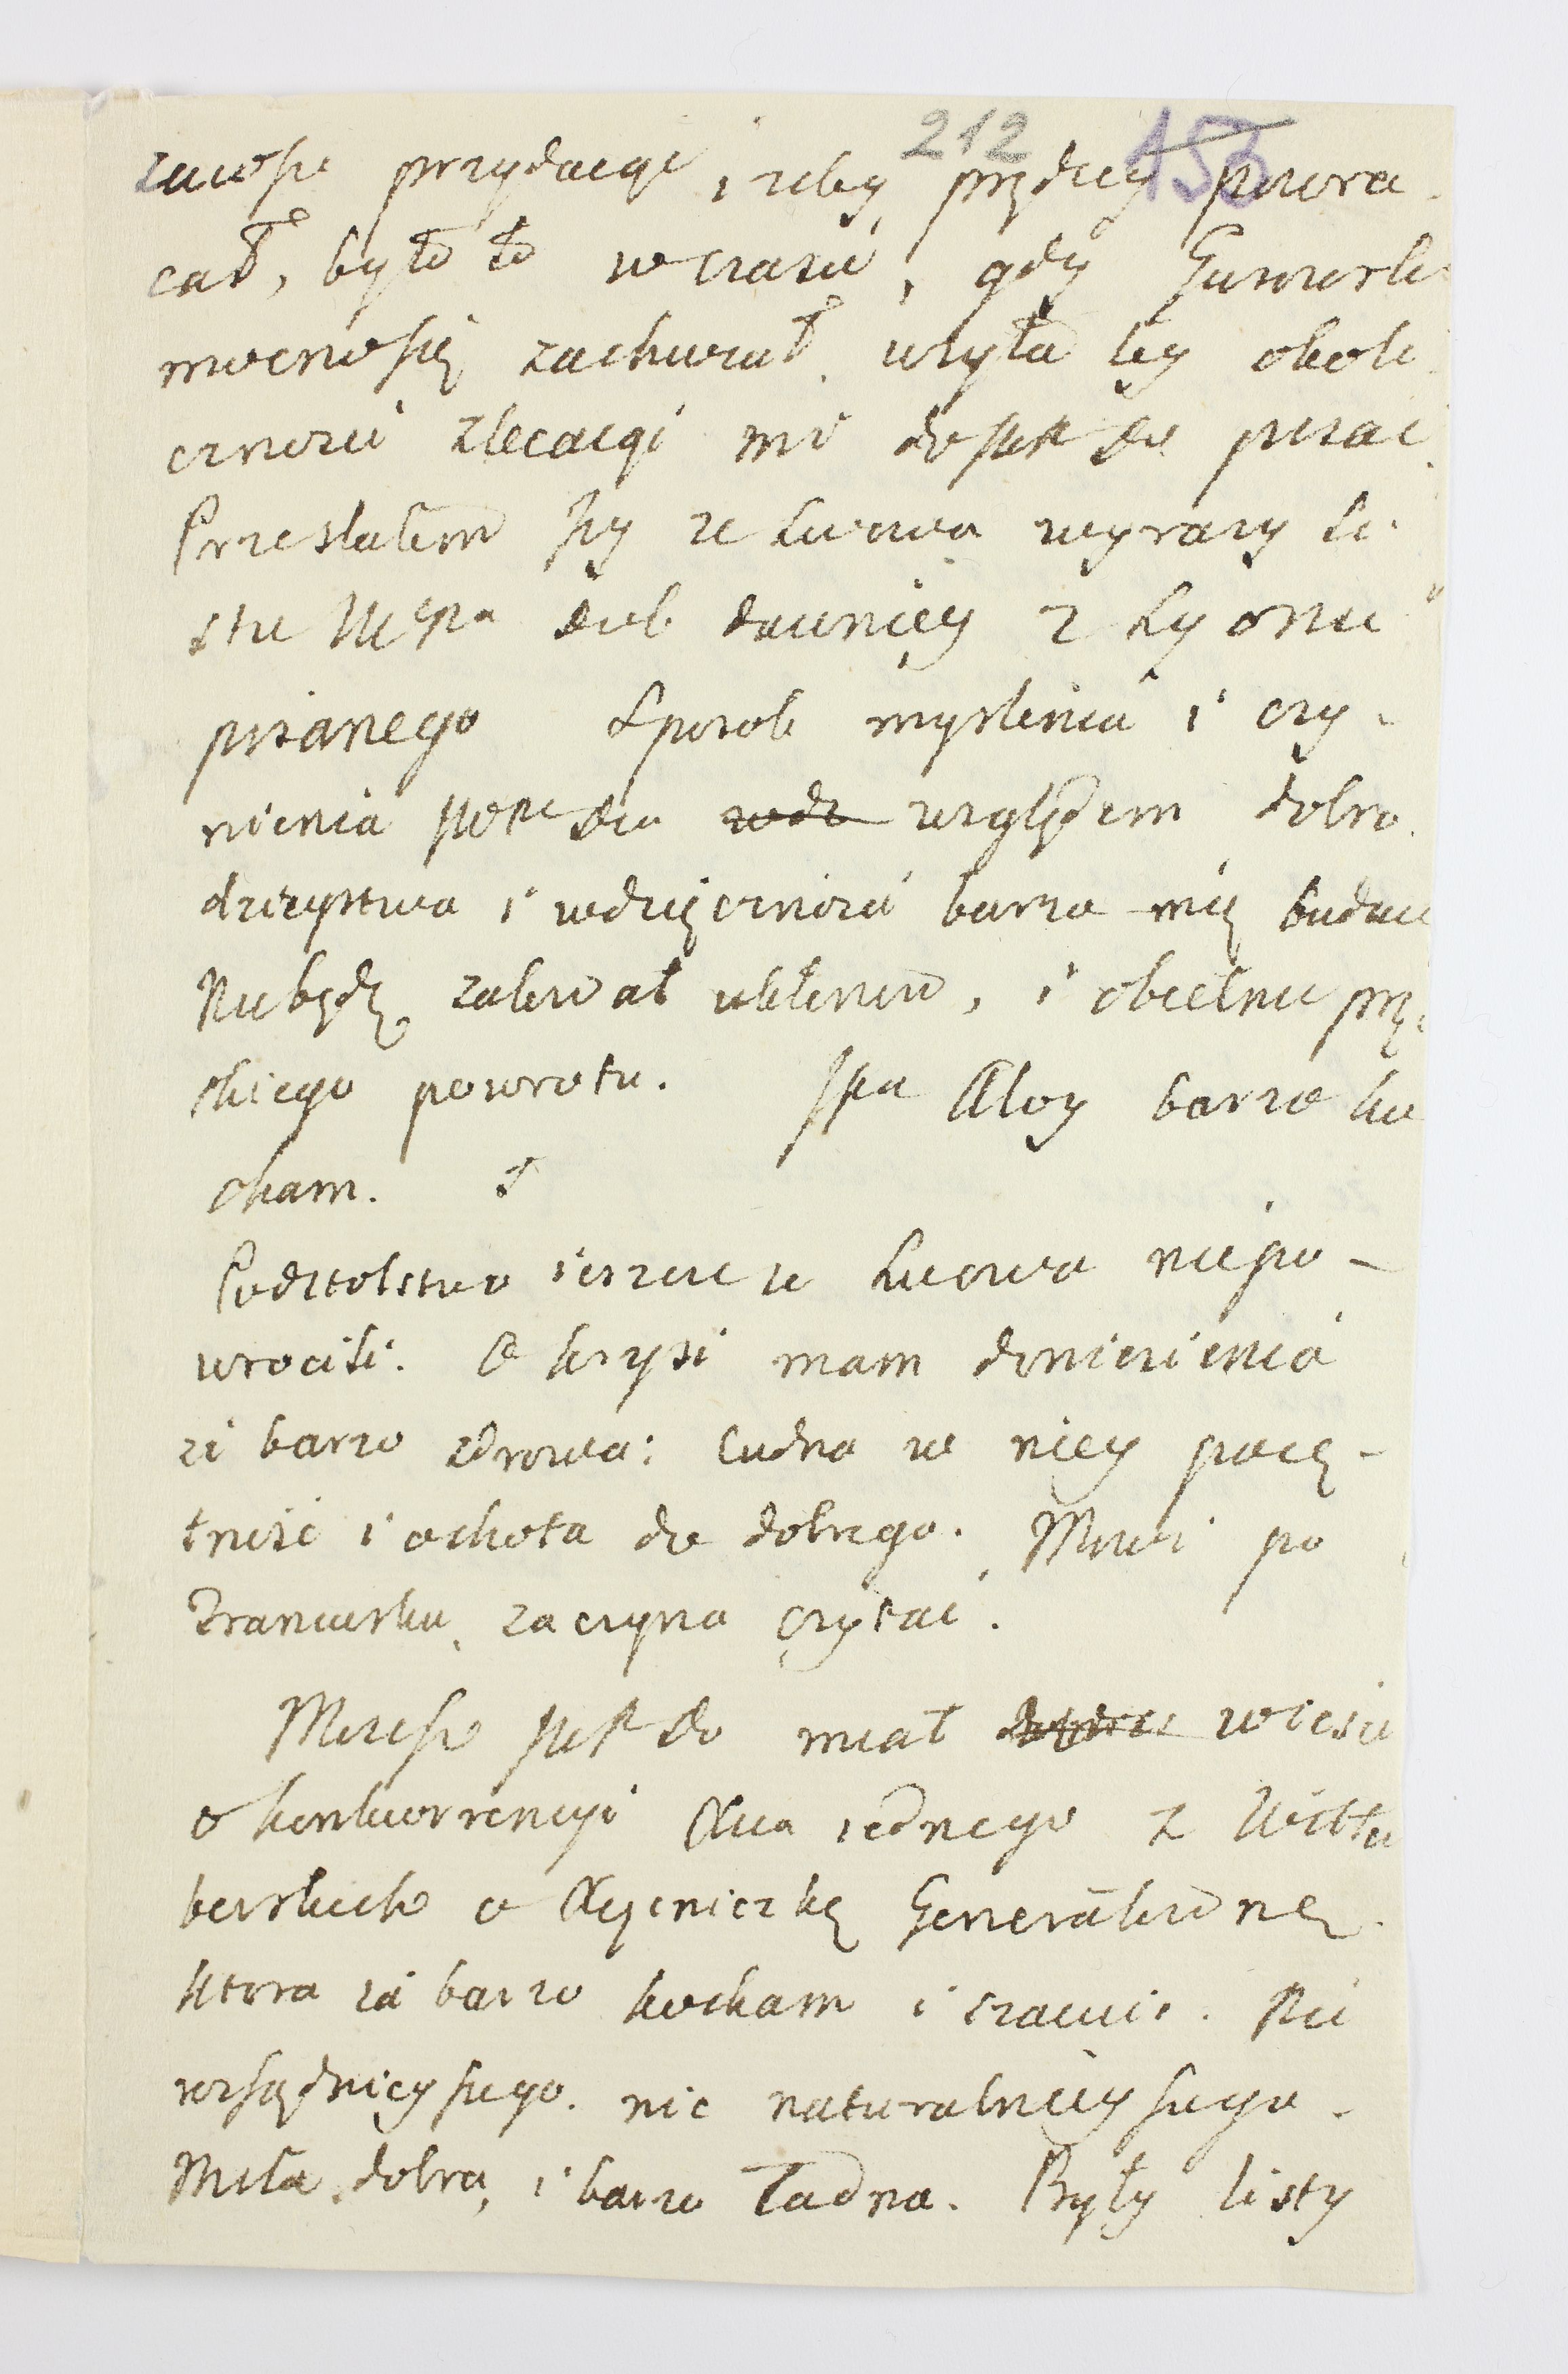 212 153
zawsze przydaiąc, i zeby prędzey powra-
cał, było to w czasie, gdy Gurowski
mocno się zachwiał użyła tey okoli
cznosci zlecaiąc mi do pisać
Przesłałem Jey ze Lwowa wyrazy Li-
stu dawniey z Lyonu
pisanego Sposob myslenia i czy-
nienia względem dobro
dzieystwa i wdzięcznosci barzo mię buduie
Niebędę załował i obietnic prę-
tkiego powrotu. JPa Aloy barzo ko
cham.
Podstolstwo ieszcze w Lwowa niepo-
wrocili. O Krysi mam doniesienia
ze barzo zdrowa: Cudna w niey poię-
tnosc i ochota do dobrego. Mowi po
Francusku, zaczyna czytać.
miał wiesci
o konkurrencyi Xcia iednego z Wirtem
berskich o Xiężniczkę Generałownę
ktora ia barzo kocham i szacuię. Nic
rozsądnieyszego. nic naturalnieyszego.
Miła, dobra, i barzo ładna. Były listy